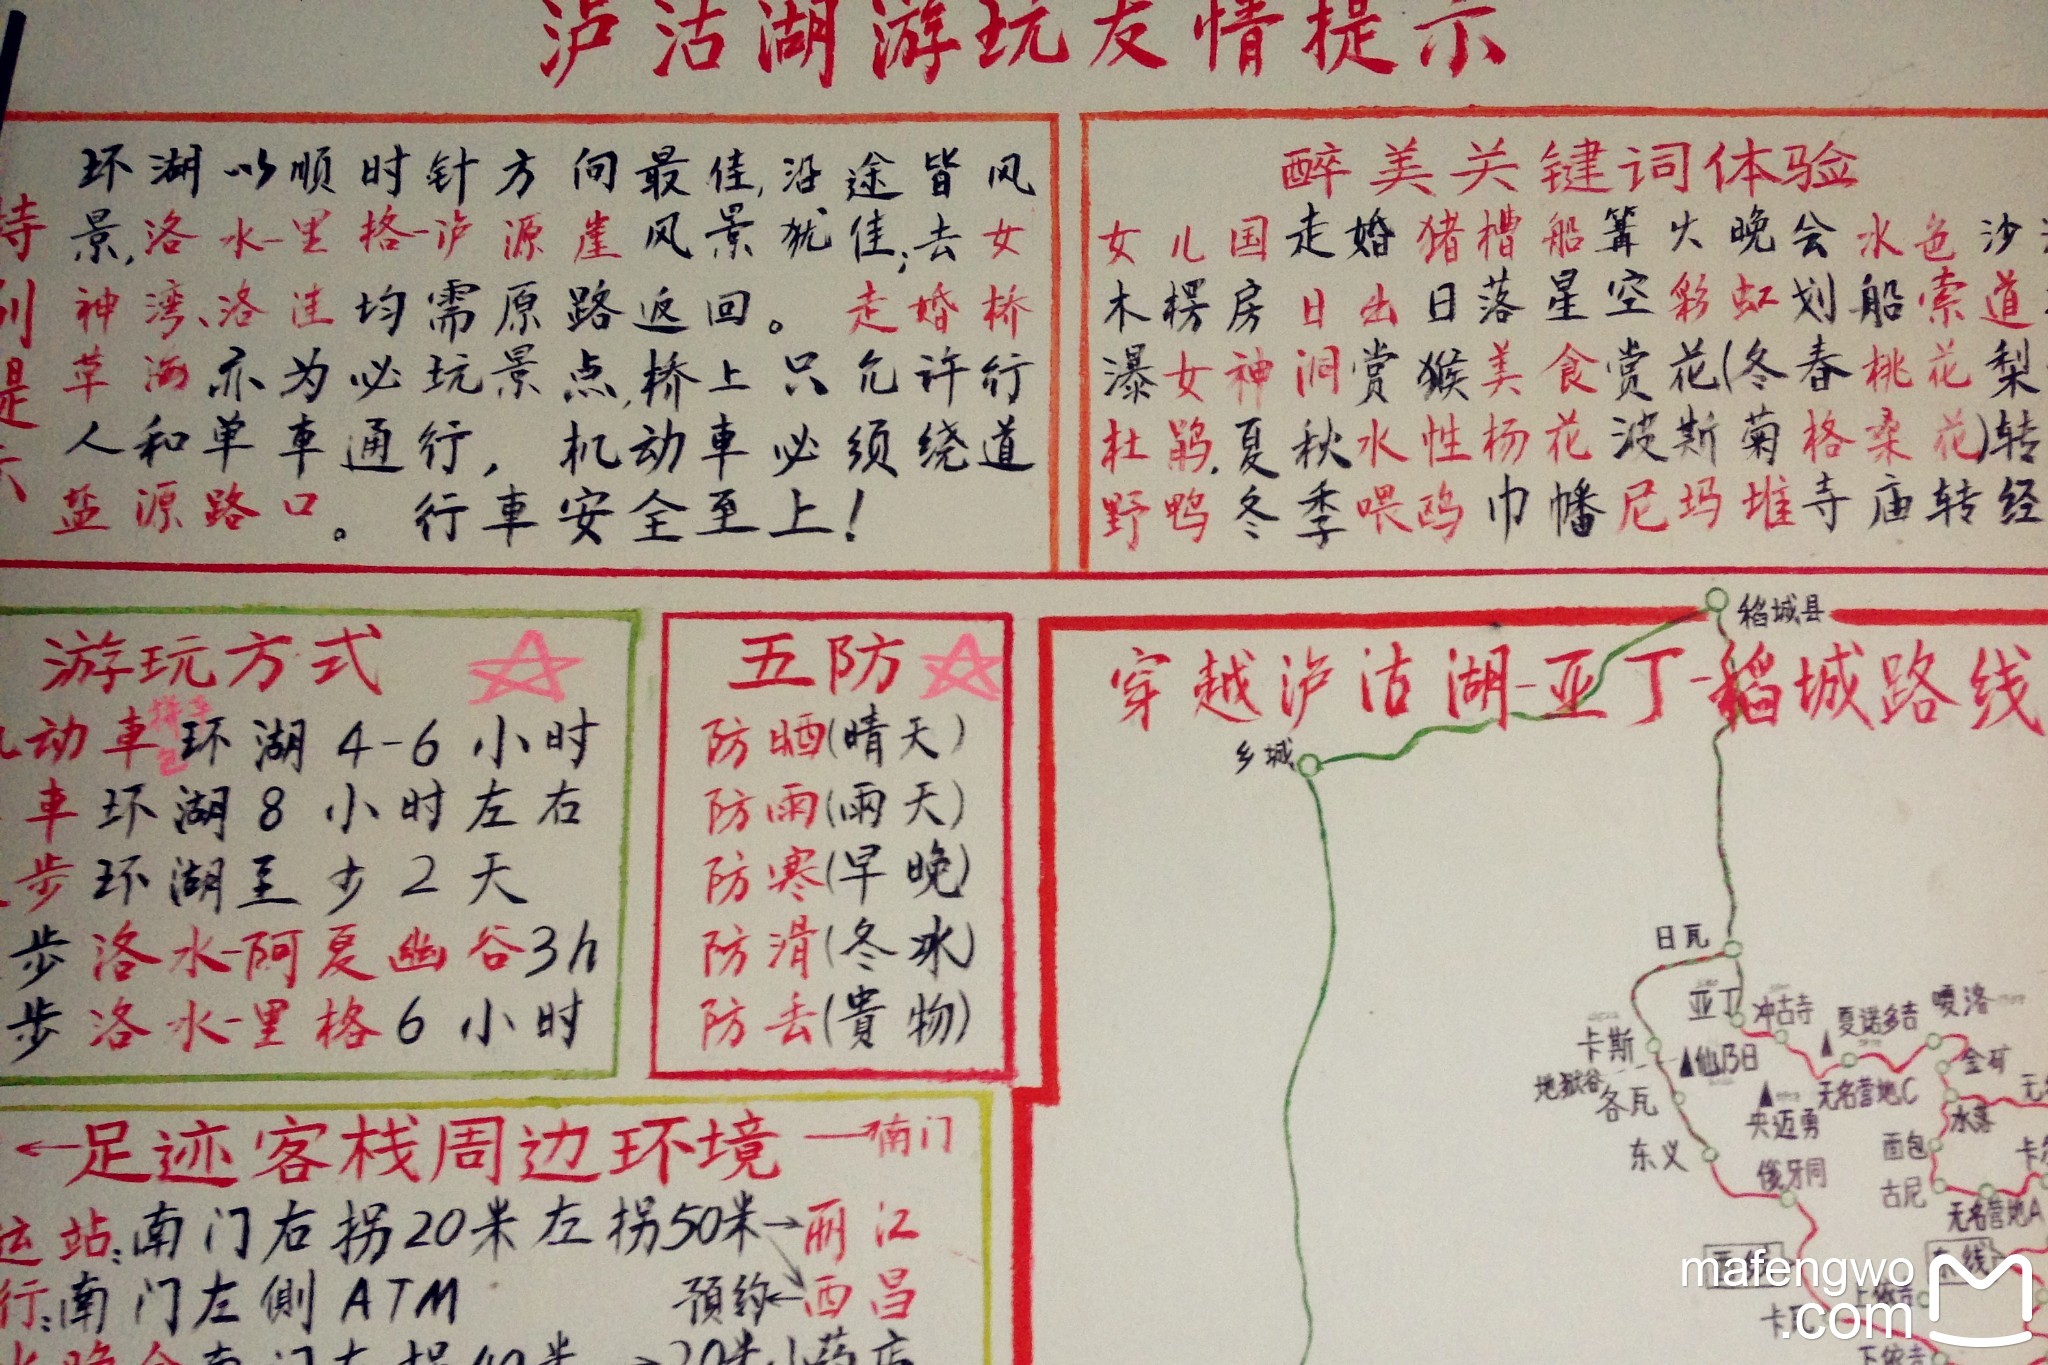 泸沽湖游玩友情提示
特别提示
环湖以顺时针方向最佳,沿途皆风
景,洛水-里格-泸源崖风景犹佳;去女
神湾、洛洼均需原路返回。走婚桥
草海亦为必玩景点,桥上只允许行
人和单車通行,机动車必须绕道
盐源路口。行車安全至上!
醉美关键词体验
女儿国走婚猪槽船篝火晚会水色沙
木楞房日出日落星空彩虹划船索道
瀑女神洞赏猴美食赏花(冬春桃花梨
杜鹃.夏秋水性杨花波斯菊格桑花)转
野鸭冬季喂鸥巾幡尼玛堆寺庙转经
游玩方式
动車环湖4-6小时
車环湖8小时左右
步环湖至少2天
步洛水-阿夏幽谷3h
步洛水-里格6小时
五防
防晒(晴天)
防雨(雨天)
防寒(早晚)
防滑(冬冰)
防丢(貴物)
穿越泸沽湖-亚丁-稻城路线
稻城县
乡城
日瓦
亚丁
冲古寺
夏诺多吉
嘎洛
卡斯
仙乃日
金矿
地狱谷
各瓦
央迈勇
无名营地C
水落
东义
俄牙同
面包
古尼
无名营地A
←足迹客栈周边环境—南门
运站:南门右拐20米左拐50米→丽江
行:南门左侧ATM 预约←西昌
mafengwo
.com